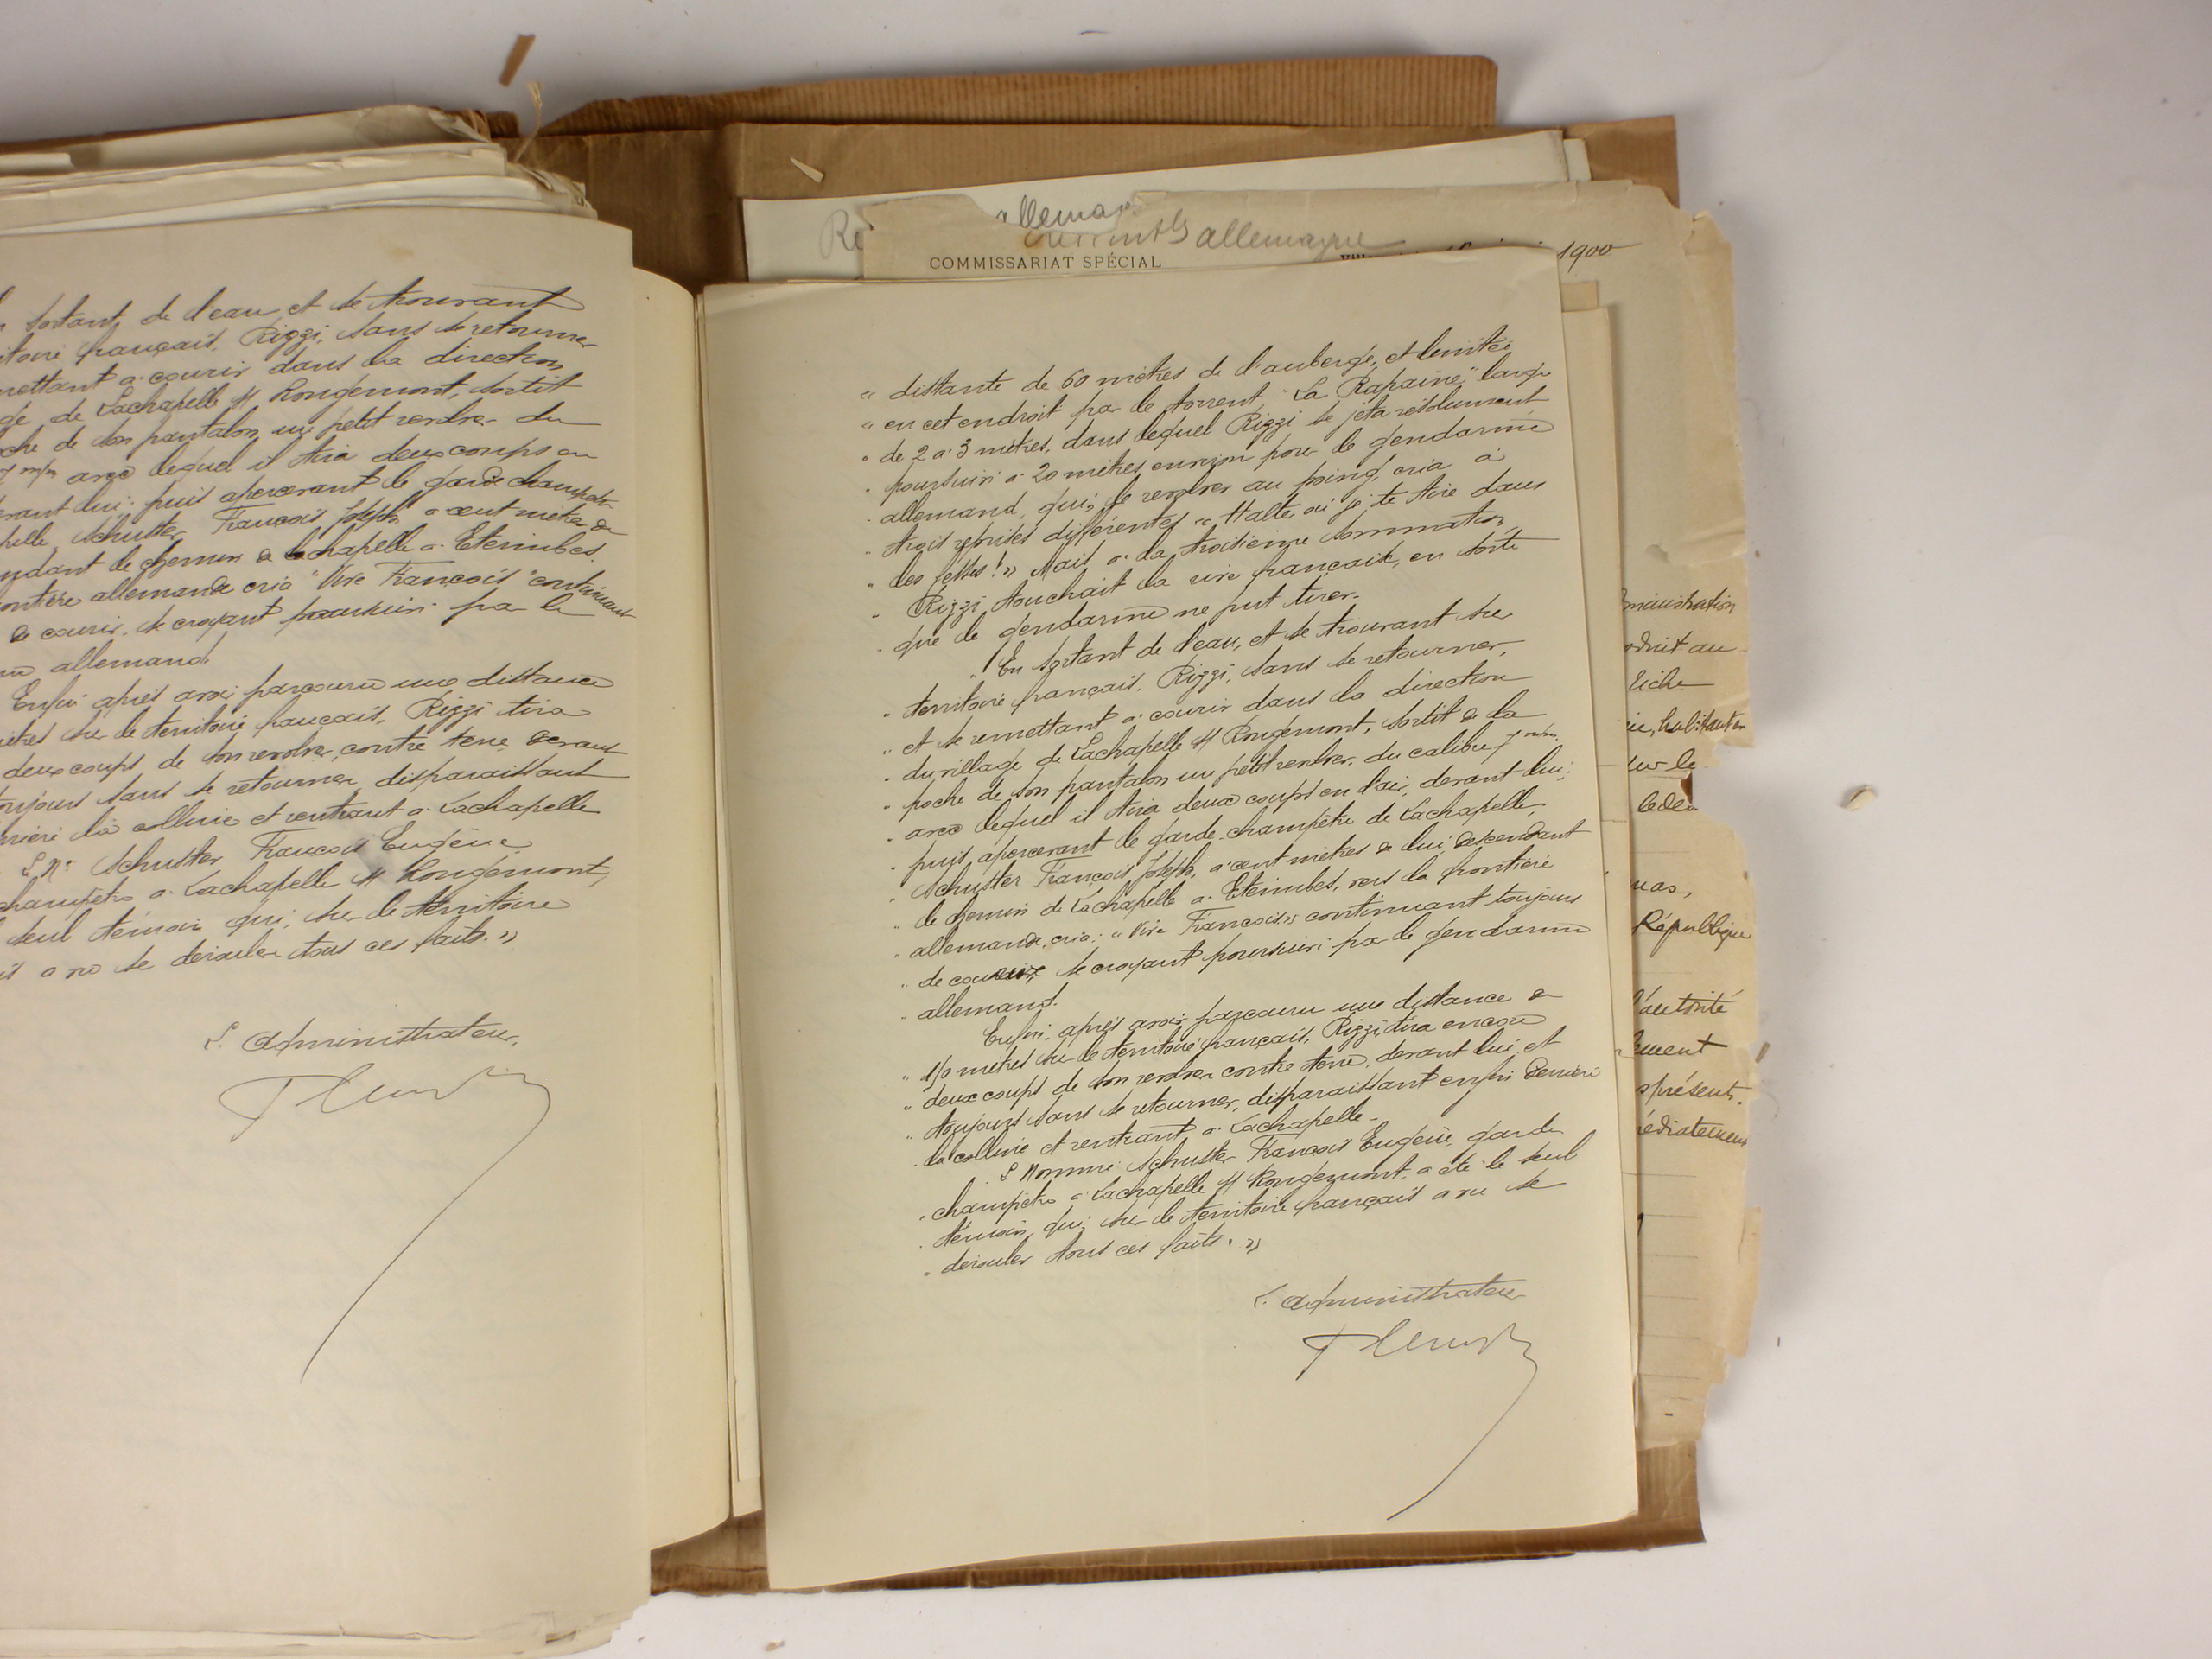 sortant de l'eau et se trouvant
français, Rizzi, sans se retourner
mettant à courir dans la direction
de Lachapelle s/ Rougemont, sortit
de son pantalon un petit revolver du
7 m/m avec lequel il tira deux coups en
devant lui; puis apercevant le garde champêt-
Schuster François Joseph à cent mètres de
le chemin de Lachapelle à Eteimbes.
allemande cria "Vive François" continuant
de courir, se croyant poursuivi par le
allemand.
Enfin après avoir parcouru une distance
mètres sur le territoire français, Rizzi tira
deux coups de son revolver, contre terre devant
toujours sans se retourner, disparaissant
la colline et rentrant à Lachapelle
L. Né Schuster François Eugène
champêtre à Lachapelle s/ Rougemont,
seul témoin qui, sur le territoire
a vu se dérouler tous ces faits. »
L'administrateur,
Re allemand
allemagne
COMMISSARIAT SPÉCIAL
1900
« distante de 60 mètres de l'auberge, et limitée
« en cet endroit par le torrent, "La Rapaine," large
" de 2 à 3 mètres, dans lequel Rizzi se jeta résolument,
" poursuivi à 20 mètres environ par le gendarme
" allemand, qui, le revolver au poing, cria à
" trois reprises différentes « Halte ou je te tire dans
" les fesses! » Mais à la troisième sommation
" Rizzi touchait la rive française, en sorte
" que le gendarme ne put tirer.
" En sortant de l'eau, et se trouvant sur
" territoire français, Rizzi, sans se retourner,
" et se remettant à courir dans la direction
" du village de Lachapelle s/ Rougemont, sortit de la
" poche de son pantalon un petit revolver, du calibre 7 m/m.
" avec lequel il tira deux coups en l'air, devant lui;
" puis, apercevant le garde-champêtre de Lachapelle,
" Schuster François Joseph, à cent mètres de lui, descendant
" le chemin de Lachapelle à Eteimbes, vers la frontière
" allemande, cria: « Vive François » continuant toujours
" de courir, se croyant poursuivi par le gendarme
" allemand.
Enfin, après avoir parcouru une distance de
" 150 mètres sur le territoire français, Rizzi tira encore
" deux coups de son revolver contre terre, devant lui, et
" toujours sans se retourner, disparaissant enfin derrière
" la colline et rentrant à Lachapelle.
L Nommé Schuster François Eugène, garde
" champêtre à Lachapelle s/ Rougemont, a été le seul
" témoin, qui, sur le territoire français a vu se
" dérouler tous ces faits. »
L'administrateur
habitant en
sur le
République
l'autorité